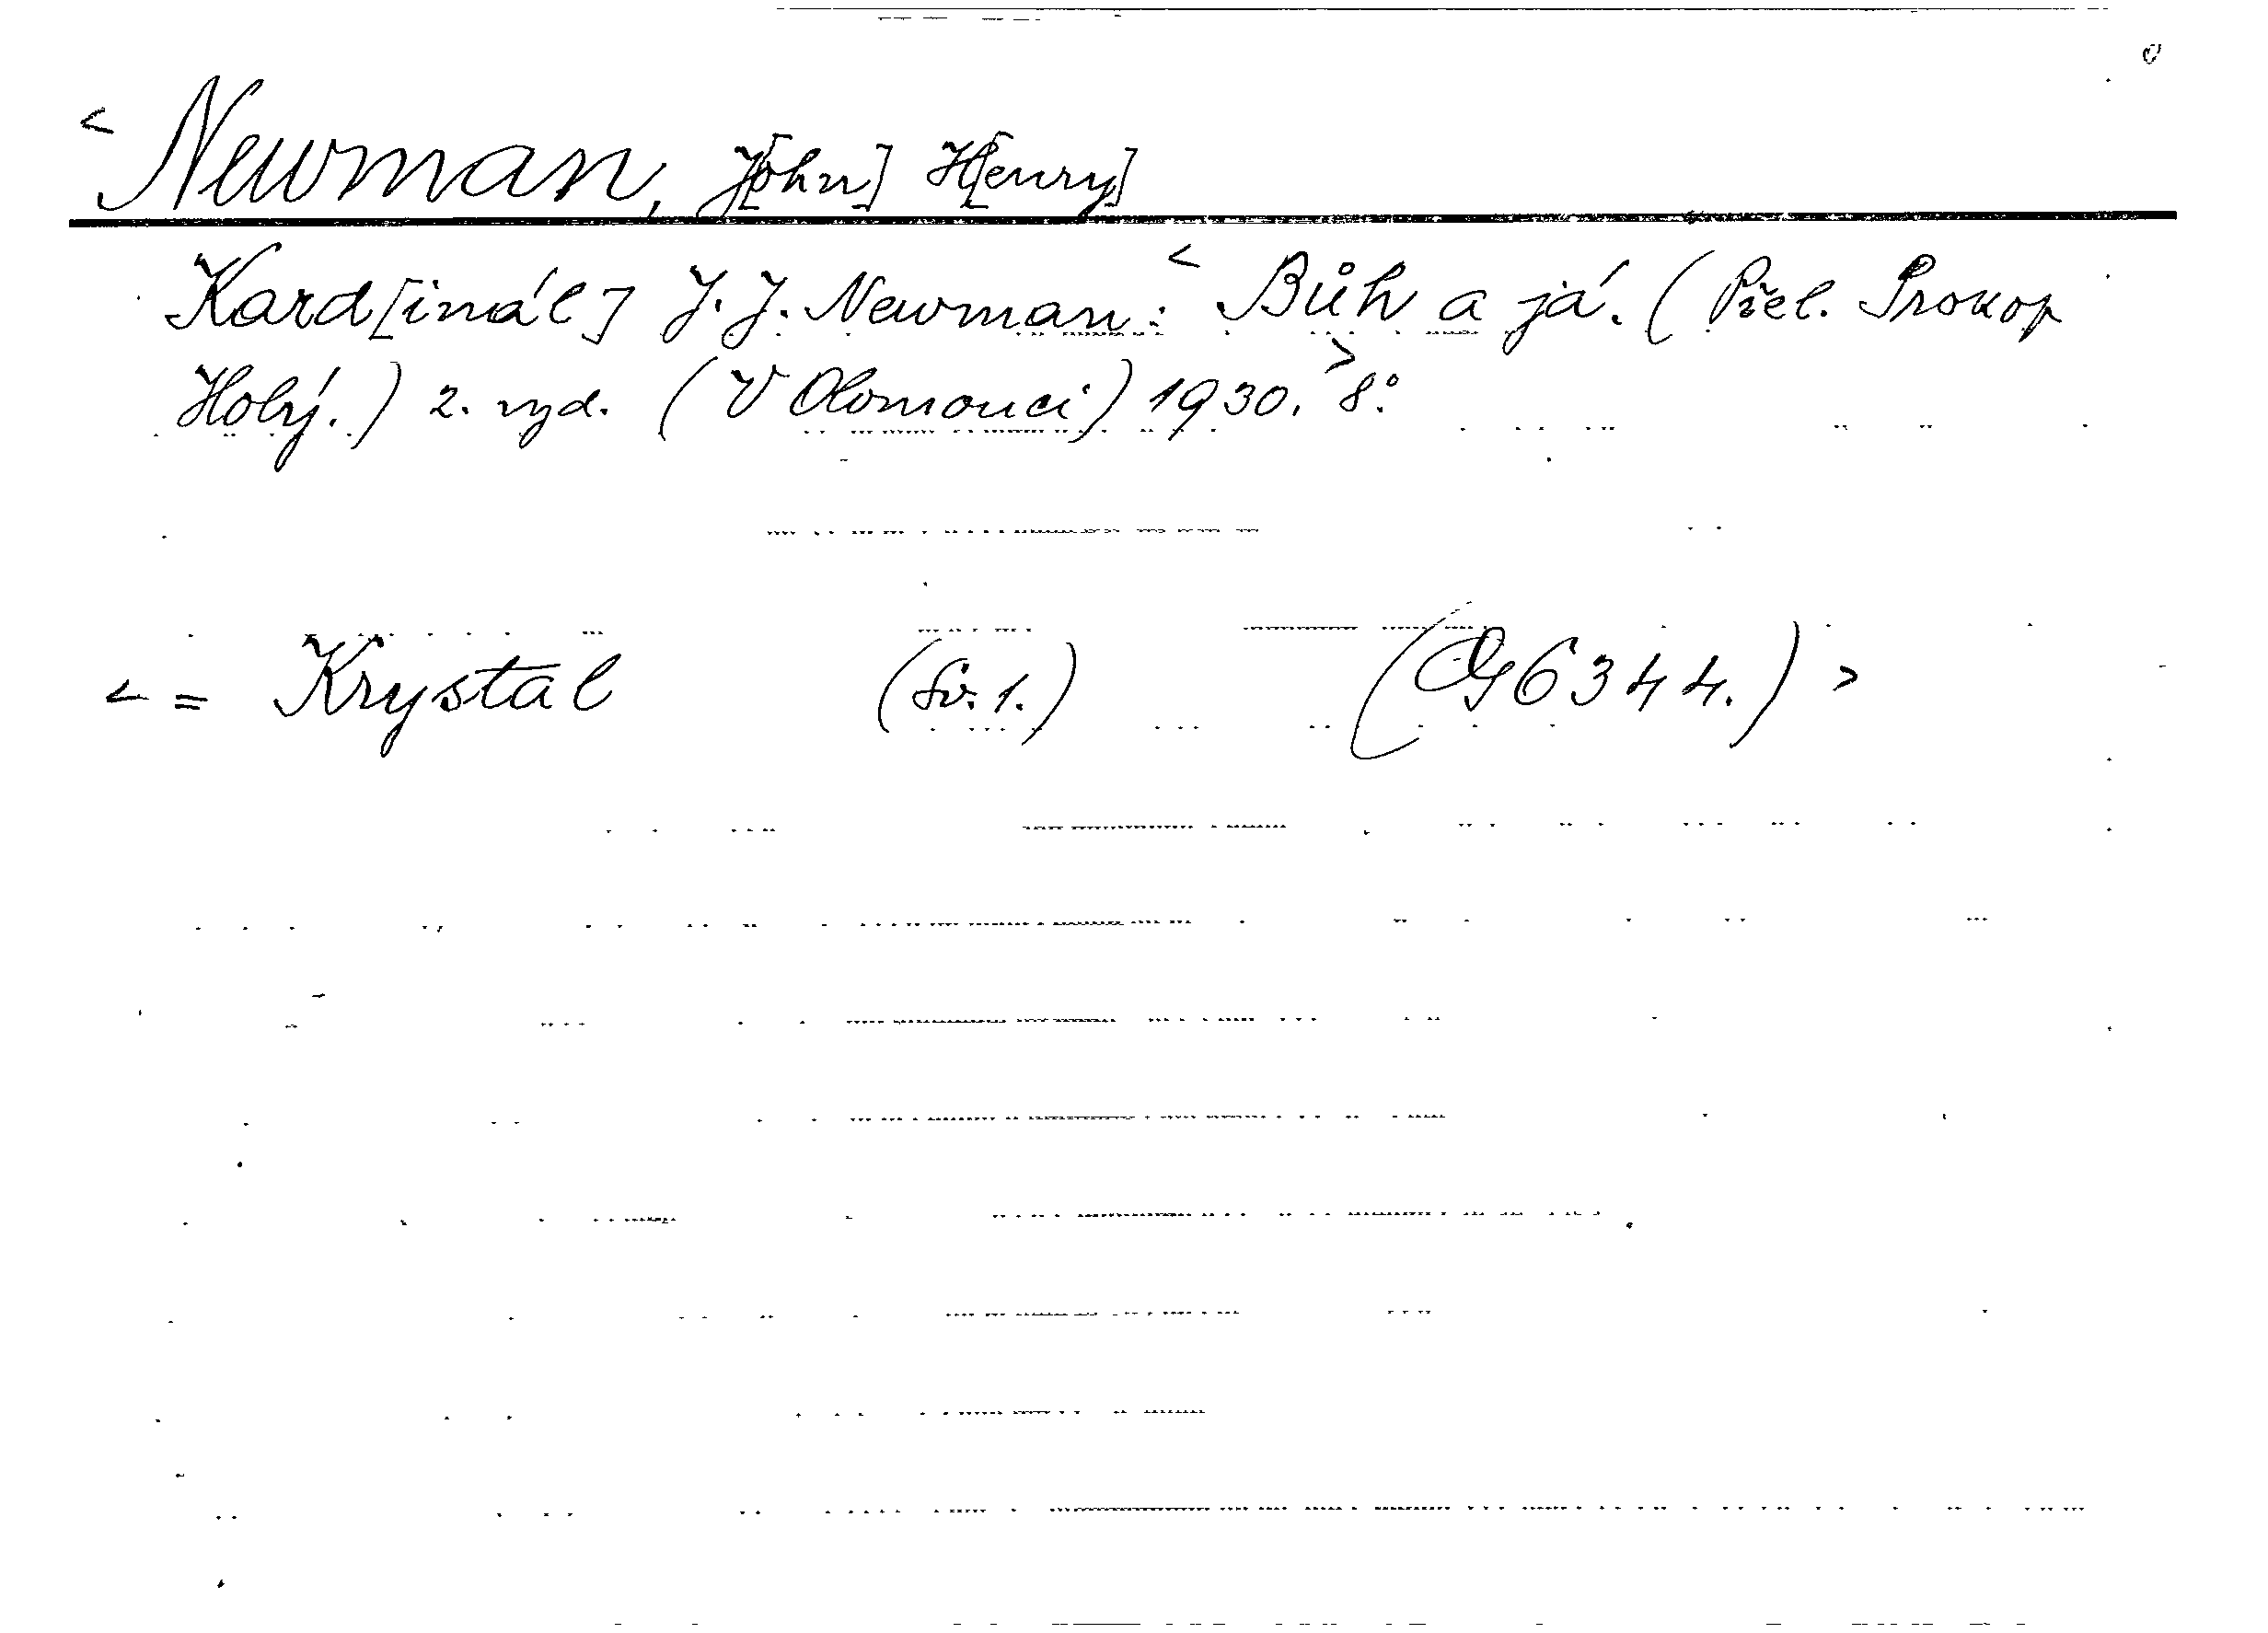 < Newman, J[ohn] H[enry]
Kard[inál] J. J. Newman: < Bůh a já. (Přel. Prokop
Holý.) 2. vyd. (V Olomouci) 1930. > 8°.
< = Krystal (Sv. 1.) (G 6344.) >